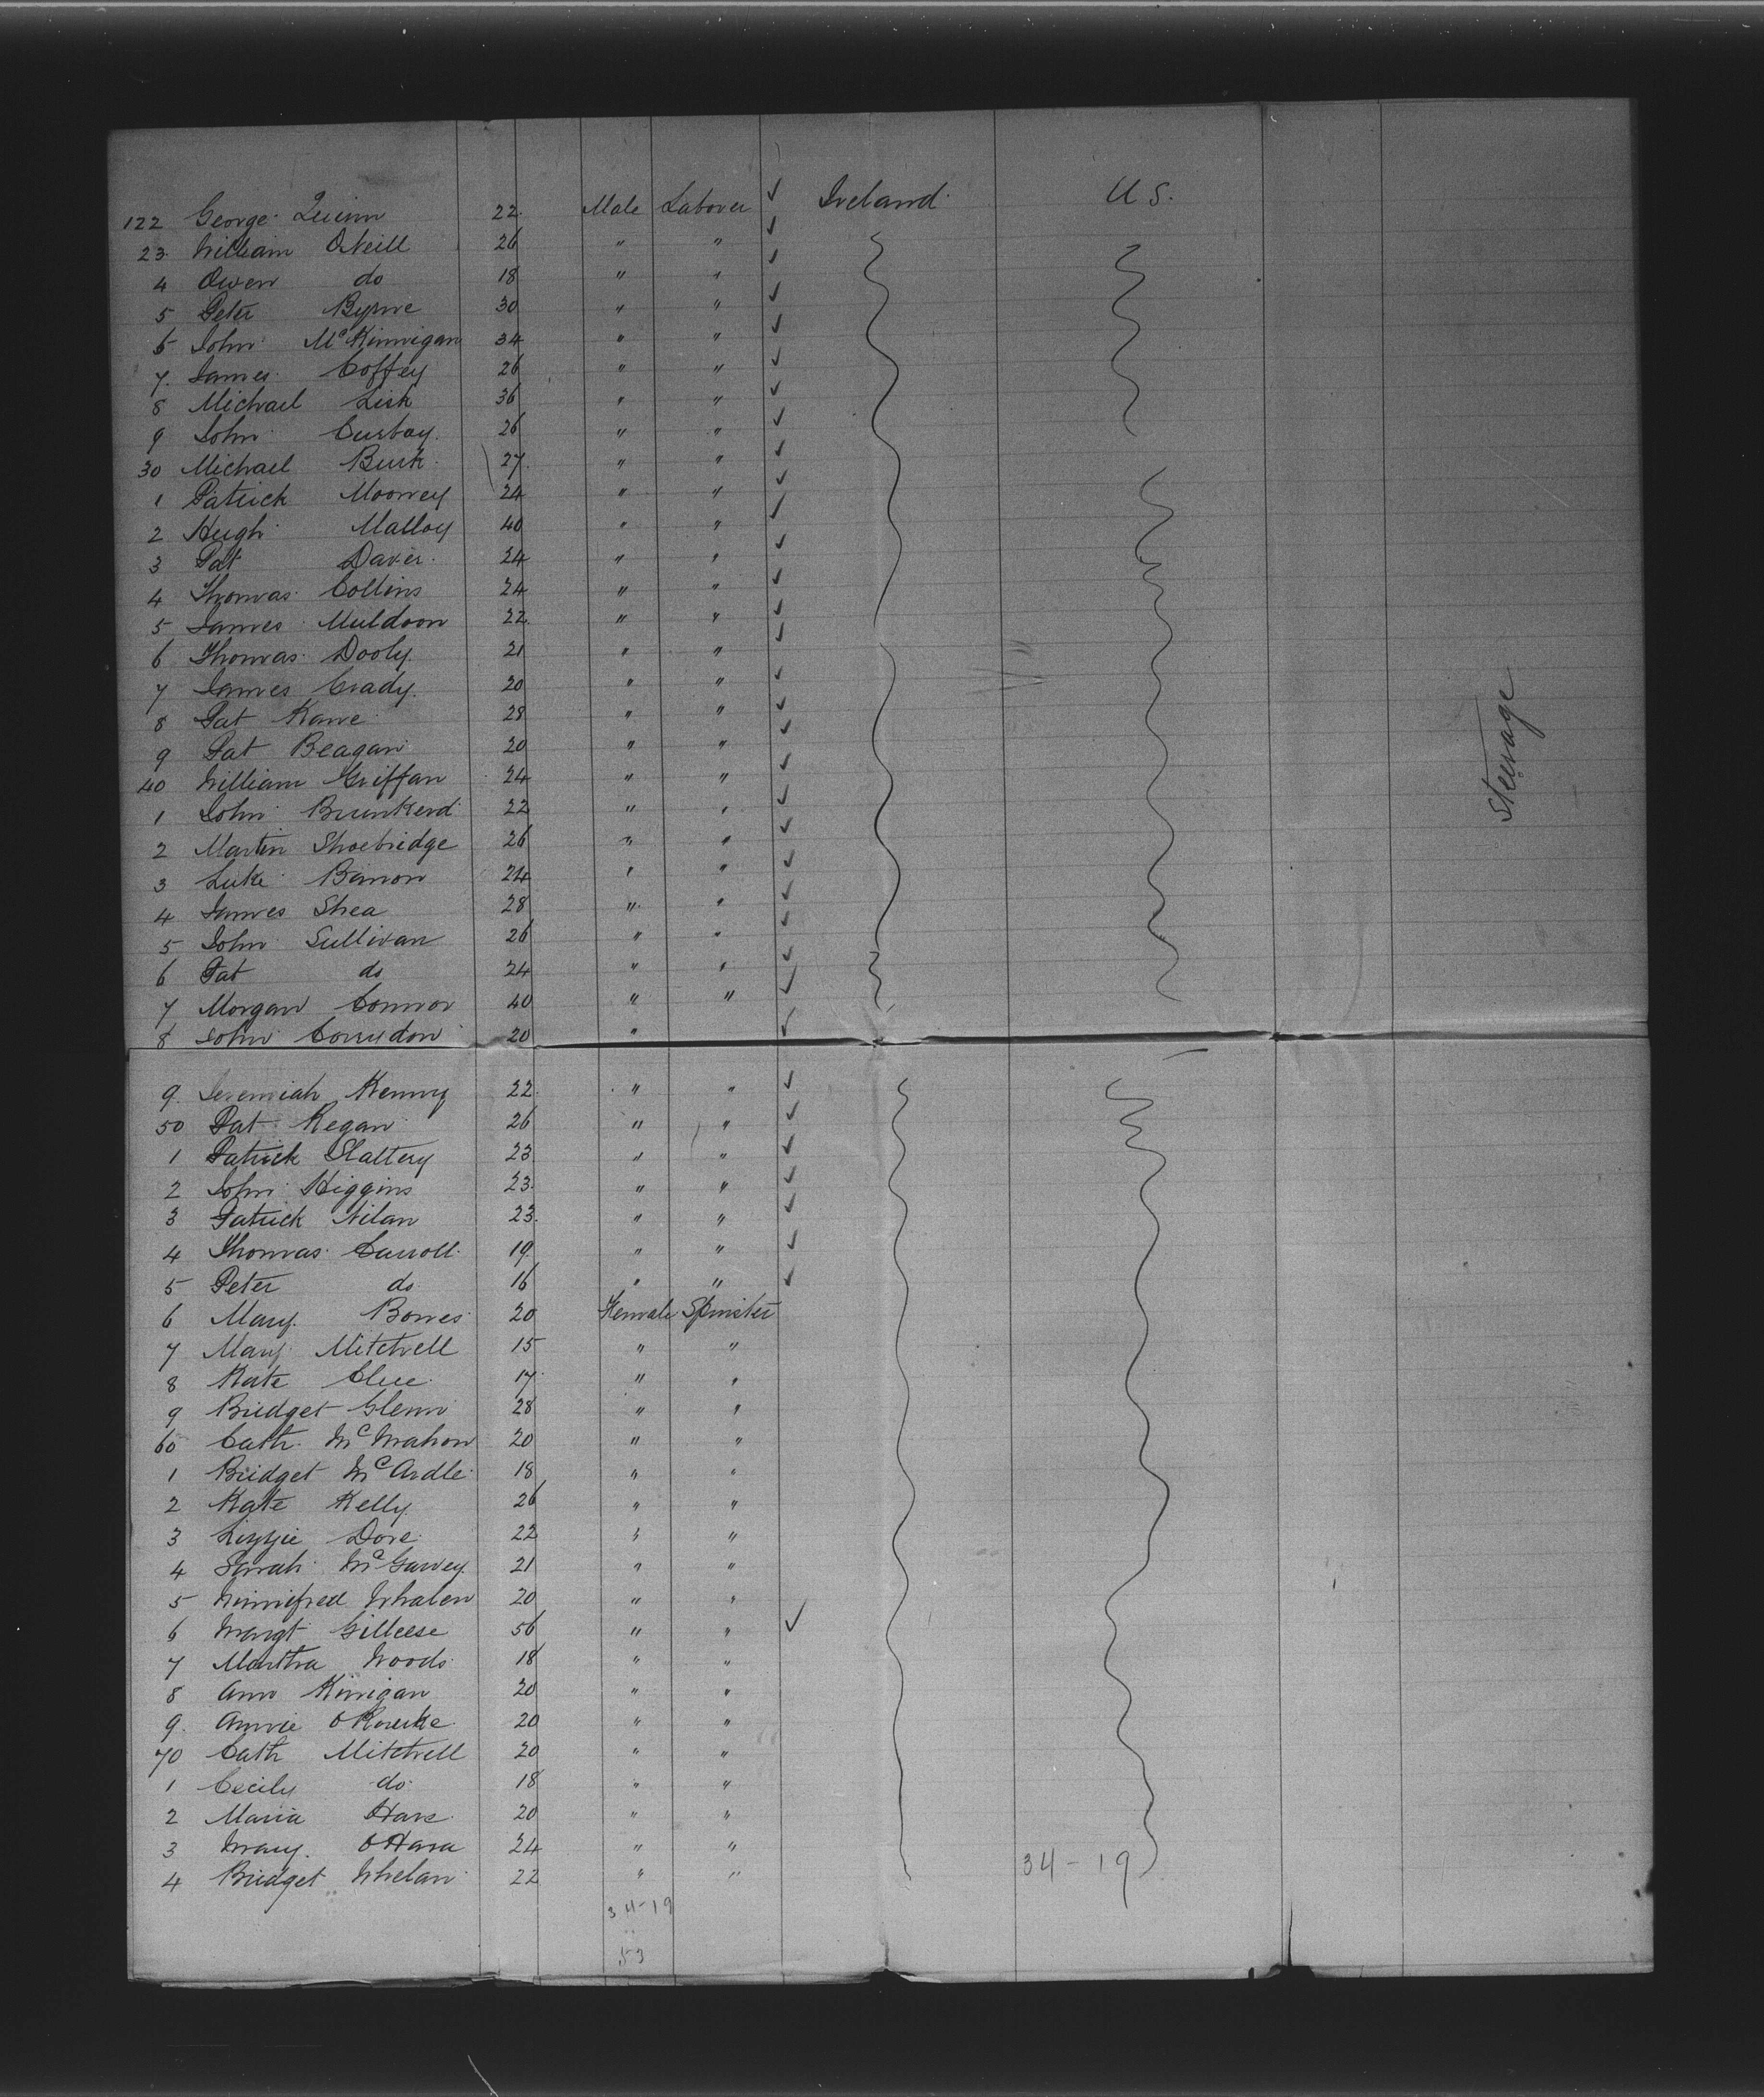 122 George Quinn 22 Male Laborer ✓ Ireland U S.
23 William ONeill 26 " " ✓
4 Owen do 18 " " ✓
5 Peter Byrne 30 " " ✓
6 John McKinnigan 34 " " ✓
7 James Coffey 26 " " ✓
8 Michael Lisk 36 " " ✓
9 John 26 " " ✓
30 Michael Burk 27 " " ✓
1 Patrick Mooney 24 " " ✓
2 Hugh Malloy 40 " " ✓
3 Pat Davis 24 " " ✓
4 Thomas Collins 24 " " ✓
5 James Muldoon 22 " " ✓
6 Thomas Dooly 21 " " ✓
7 James Crady 20 " " ✓
8 Pat Kane 28 " " ✓
9 Pat Beagan 20 " " ✓
40 William Griffan 24 " " ✓
1 John Brunkerd 22 " " ✓
2 Martin Shoebridge 26 " " ✓
3 Luke Bannon 24 " " ✓
4 James Shea 28 " " ✓
5 John Sullivan 26 " " ✓
6 Pat do 24 " " ✓
7 Morgan Connor 40 " " ✓
8 John Corrydon 20 " ✓
9 Jeremiah Kenny 22 " " ✓
50 Pat Regan 26 " " ✓
1 Patrick Slattery 23 " " ✓
2 John Higgins 23 " " ✓
3 Patrick Nilan 23 " " ✓
4 Thomas Carroll 19 " " ✓
5 Peter do 16 " " ✓
6 Mary Bowes 20 Female Spinster
7 Mary Mitchell 15 " "
8 Kate Clue 17 " "
9 Bridget Glenn 28 " "
60 Cath McMahon 20 " "
1 Bridget McArdle 18 " "
2 Kate Kelly 26 " "
3 Lizzie Dore 22 " "
4 Sarah McGarvey 21 " "
5 Winnifred Whalen 20 " "
6 Margt Gilleese 56 " " ✓
7 Martha Woods 18 " "
8 Ann Kinigan 20 " "
9 Annie ORourke 20 " "
70 Cath Mitchell 20 " "
1 Cecily do 18 " "
2 Maria Hare 20 " "
3 Mary OHara 24 " "
4 Bridget Whelan 22 " " 34-19
34-19
53
Steerage